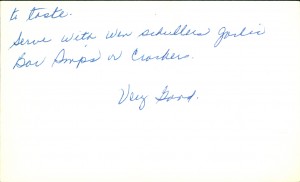 to taste.
Serve with Wen Schullers Garlic
Bar or Crackers.
Very Good.